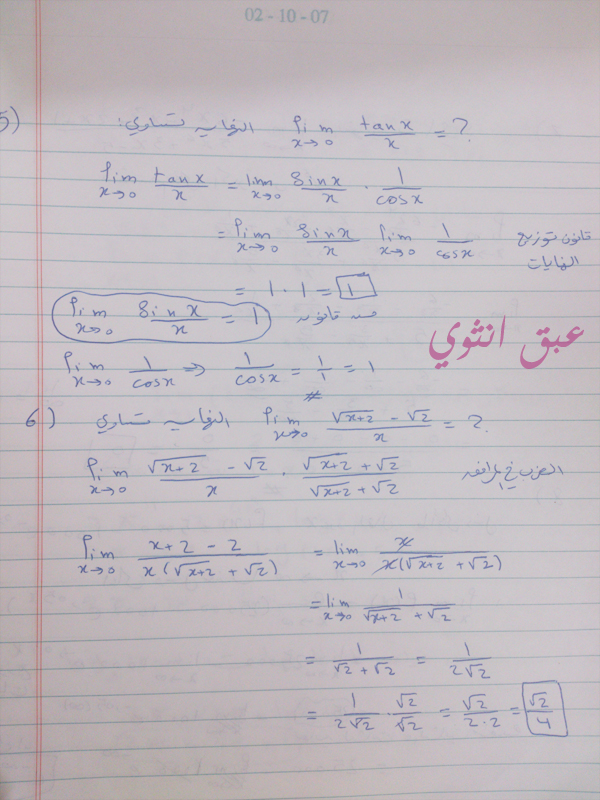 02 - 10 - 07
5) النهايه تساوي: lim x→0 tanx/x = ?
lim x→0 tanx/x = lim x→0 sinx/x · 1/cosx
= lim x→0 sinx/x lim x→0 1/cosx قانون توزيع
النهايات
= 1 · 1 = 1
lim x→0 sinx/x = 1 من قانون
عبق انثوي
lim x→0 1/cosx ⇒ 1/cosx = 1/1 = 1
#
6) النهايه تساوي lim x→0 (√(x+2) - √2)/x = ?
lim x→0 (√(x+2) - √2)/x · (√(x+2) + √2)/(√(x+2) + √2) الضرب في المرافق
lim x→0 (x+2 - 2)/(x(√(x+2) + √2)) = lim x→0 x/(x(√(x+2) + √2))
= lim x→0 1/(√(x+2) + √2)
= 1/(√2 + √2) = 1/(2√2)
= 1/(2√2) · √2/√2 = √2/(2·2) = √2/4